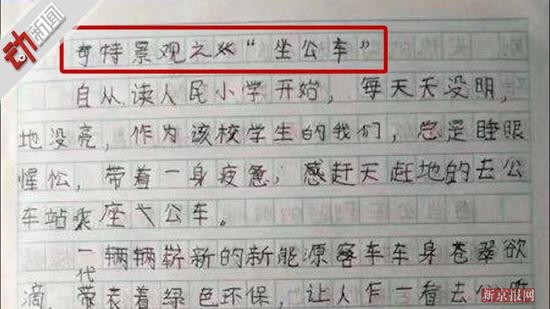 动新闻
奇特景观之 “坐公车”
自从读人民小学开始，每天天没明，
地没亮，作为该校学生的我们，总是睡眼
惺忪，带着一身疲惫，感赶天赶地的去公
车站乘座 公车。
一辆辆崭新的新能源客车车身苍翠欲
滴，代表着绿色环保，让人乍一看去
新京报网